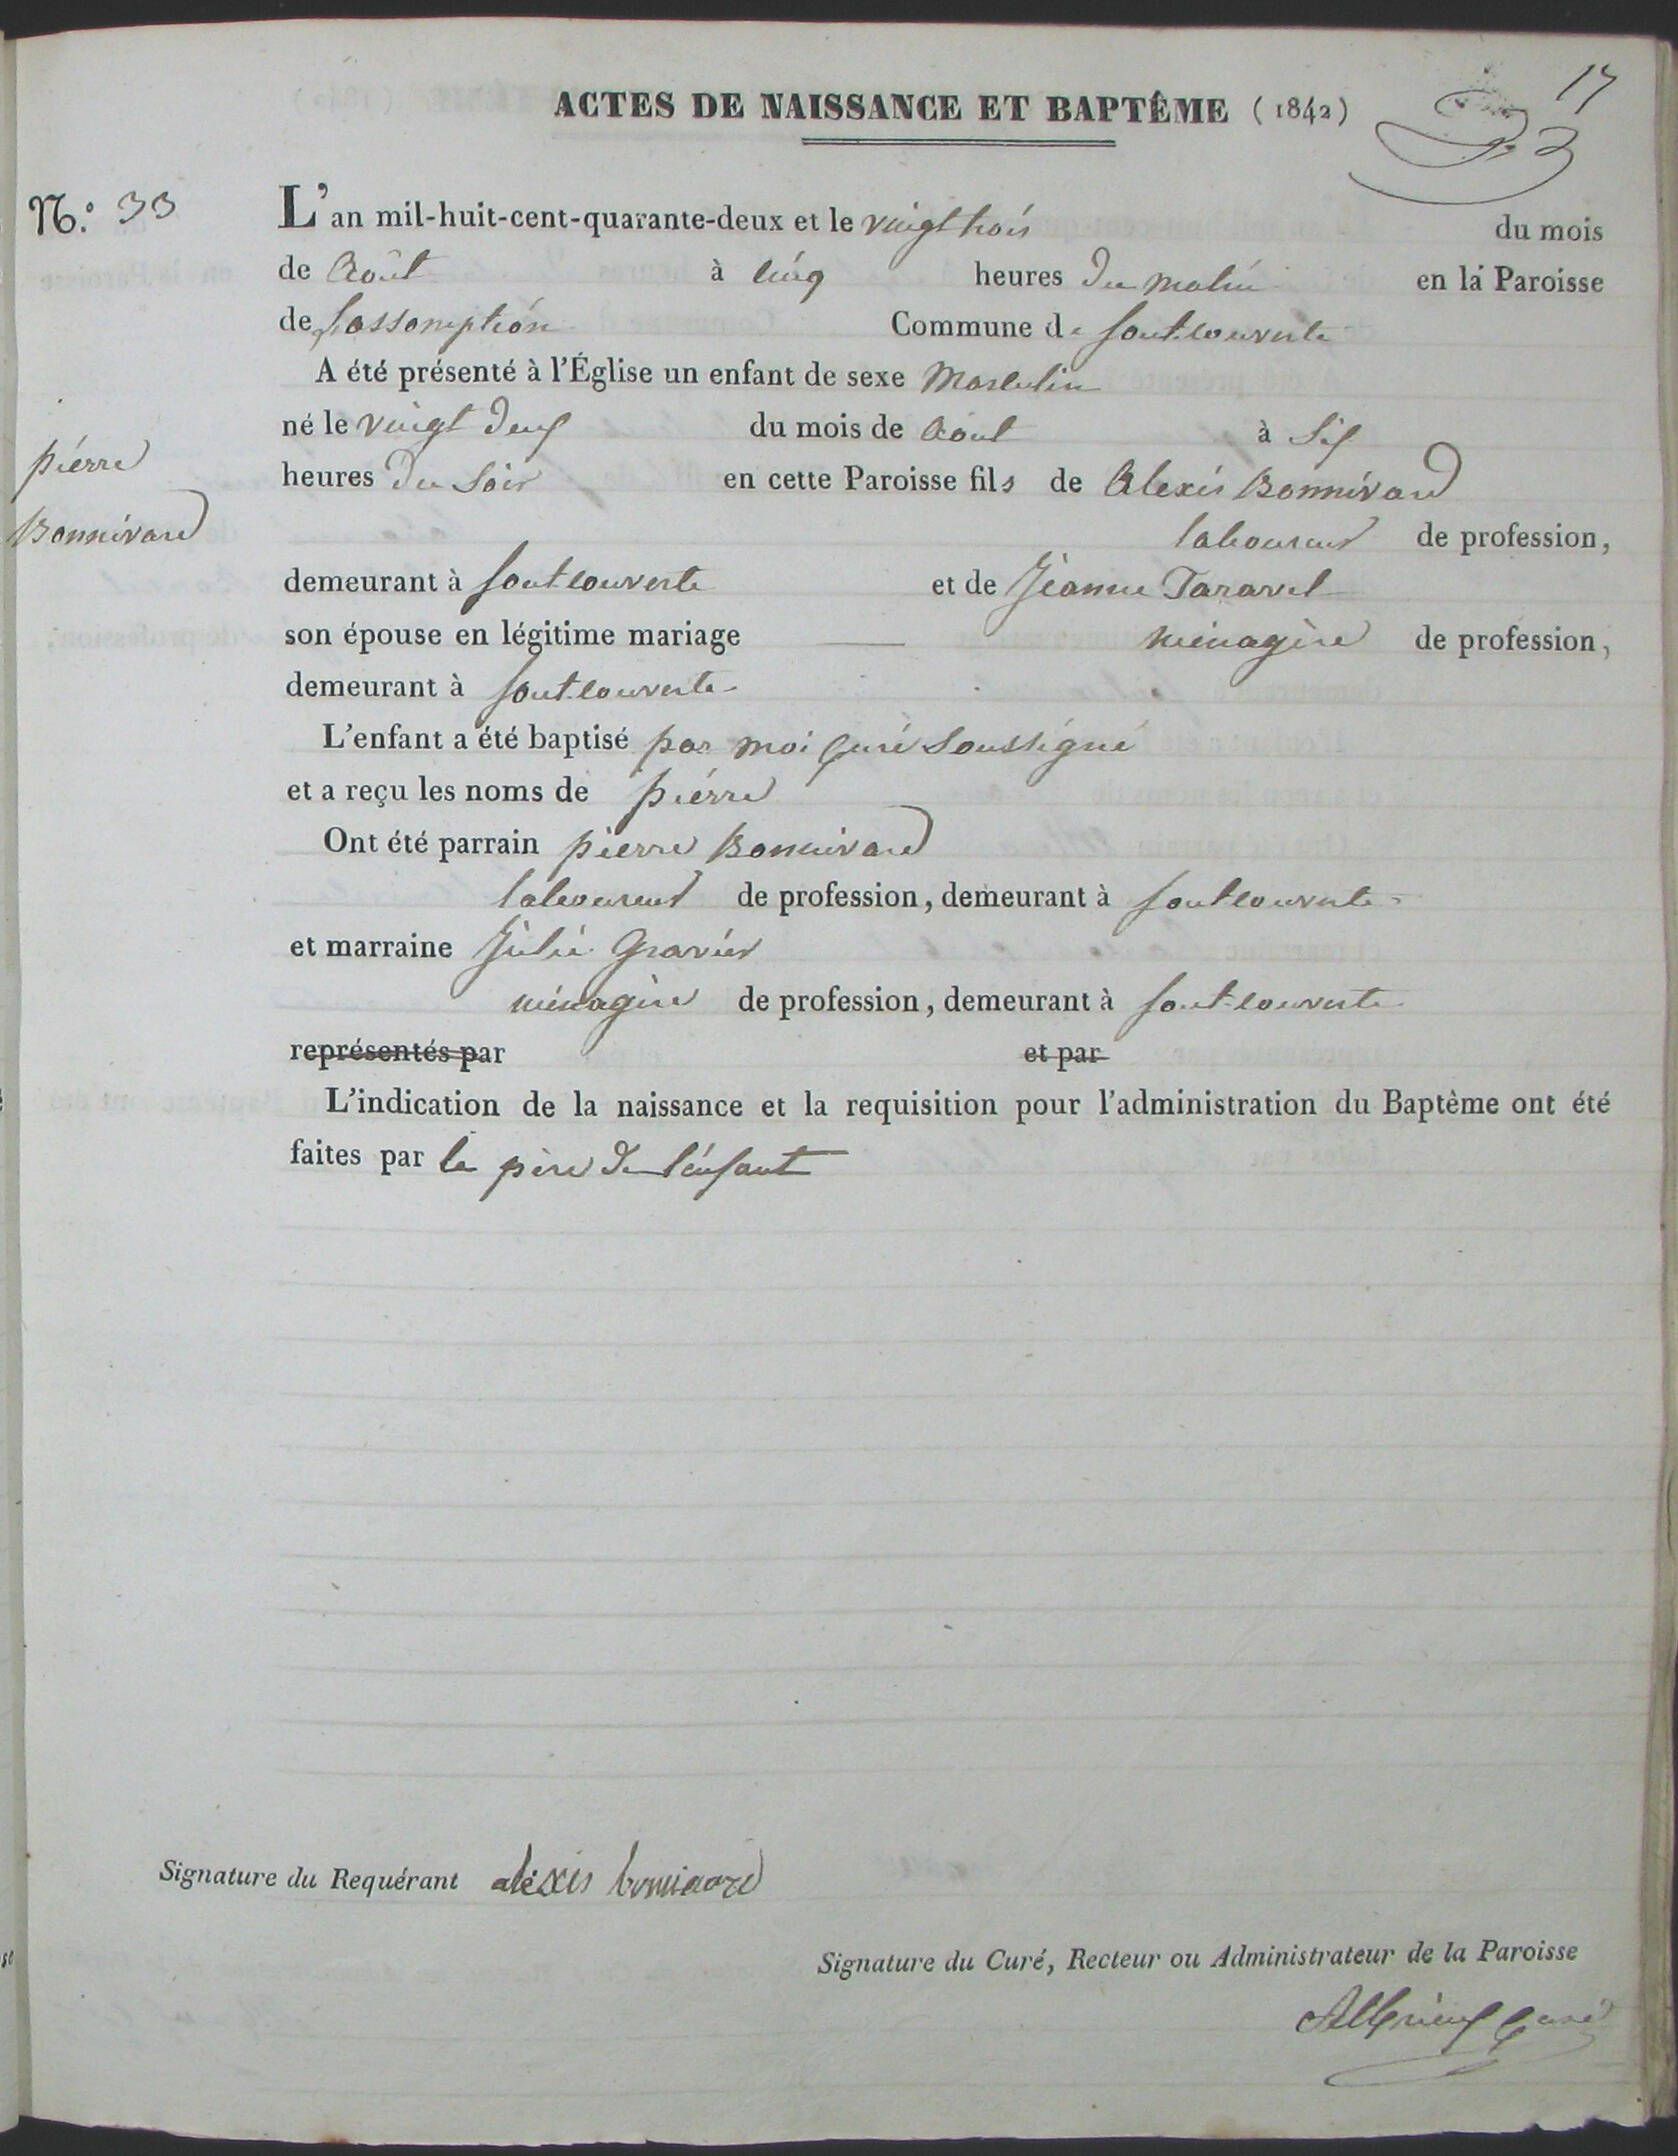 ACTES DE NAISSANCE ET BAPTÊME (1842)
17
N.º 33
L'an mil-huit-cent-quarante-deux et le vingt trois du mois
de Août à cinq heures du matin en la Paroisse
de Lassomption Commune de fontcouverte
A été présenté à l'Église un enfant de sexe Masculin
né le vingt deux du mois de Aout à Six
heures du Soir en cette Paroisse fils de Alexis Bonnivard
pierre
Bonnivard
laboureur de profession,
demeurant à fontcouverte et de Jeanne Taravel
son épouse en légitime mariage — ménagère de profession,
demeurant à fontcouverte
L'enfant a été baptisé par moi Curé Soussigné
et a reçu les noms de pierre
Ont été parrain pierre Bonnivard
laboureur de profession, demeurant à fontcouverte
et marraine Julie Gravier
ménagère de profession, demeurant à fontcouverte
représentés par et par
L'indication de la naissance et la requisition pour l'administration du Baptème ont été
faites par le père de l'enfant
Signature du Requérant alexis bonivard
Signature du Curé, Recteur ou Administrateur de la Paroisse
Curé